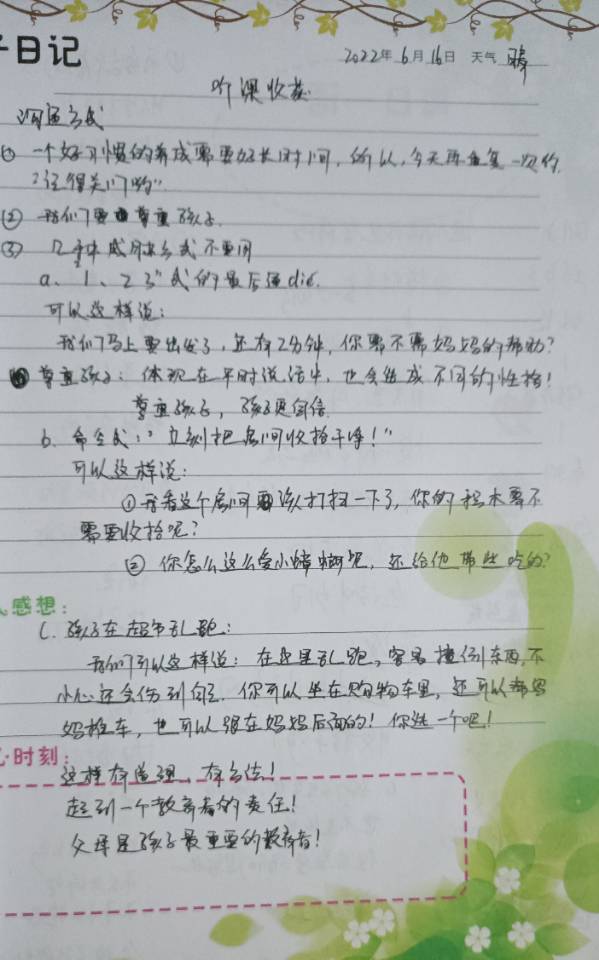 子日记
2022年6月16日 天气
听课收获
沟通方式
① 一个好习惯的养成需要好长时间，所以，今天再重复一次你
"记得关门哟"
② 我们要尊重孩子.
③ 几种成肤方式不要用
a、1、2 3"式的最后通die.
可以这样说：
我们马上要出发了，还有2分钟，你需不需妈妈的帮助？
尊重孩子：体现在平时说话中，也会造成不同的性格！
尊重孩子，孩子更自信.
b、命令式："立刻把房间收拾干净！"
可以这样说：
①我看这个房间要该打扫一下了，你的积木要不
需要收拾呢？
② 你怎么这么爱小蟑螂呢，还给他带些吃的？
感想：
C. 孩子在超市乱跑：
我们可以这样说：在这里乱跑，容易撞倒东西，不
小心还会伤到自己. 你可以坐在购物车里，还可以帮妈
妈推车，也可以跟在妈妈后面的！你选一个吧！
心时刻：
这样有道理、有方法！
起到一个教育者的责任！
父母是孩子最重要的教育者！